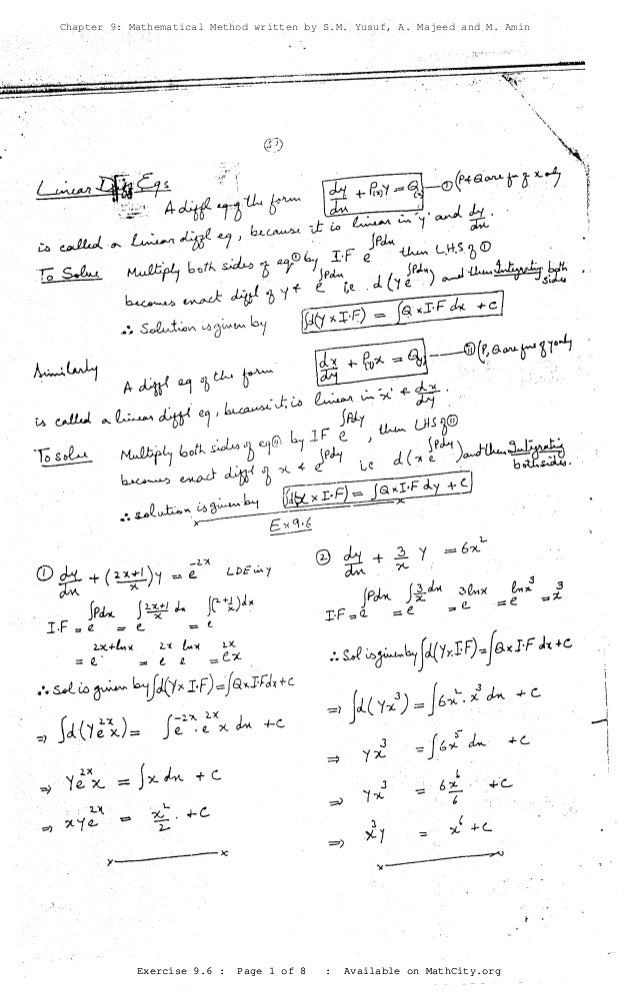 Chapter 9: Mathematical Method written by S.M. Yusuf, A. Majeed and M. Amin
(37)
Linear Diff Eqs
A diffl eq of the form dy/dx + P(x)y = Q(x) —① (P & Q are fn of x only
is called a linear diffl eq, because it is linear in 'y' and dy/dx.
To Solve Multiply both sides of eq① by I.F e^∫Pdx then L.H.S of ①
becomes exact diffl of y & e^∫Pdx ie d(ye^∫Pdx) and then Integrating both sides
∴ Solution is given by ∫d(y×I.F) = ∫Q×I.F dx + c
Similarly A diffl eq of the form dx/dy + P(y)x = Q(y) —⑪ (P, Q are fns of y only
is called a linear diffl eq, because it is linear in 'x' & dx/dy.
To solve Multiply both sides of eq⑪ by IF e^∫Pdy, then LHS of ⑪
becomes exact diffl of x & e^∫Pdy ie d(xe^∫Pdy) and then Integrating both sides.
∴ solution is given by ∫d(x×I.F) = ∫Q×I.F dy + c
Ex 9.6
① dy/dx + (2x+1/x)y = e^-2x LDE in y
I.F = e^∫Pdx = e^∫2x+1/x dx = e^∫(2+1/x)dx
= e^2x+lnx = e^2x e^lnx = e^2x x
∴ Sol is given by ∫d(y×I.F) = ∫Q×I.F dx + c
⇒ ∫d(ye^2x x) = ∫e^-2x . e^2x x dx + c
⇒ ye^2x x = ∫x dx + c
⇒ xye^2x = x²/2 . + c
② dy/dx + 3/x y = 6x²
I.F = e^∫Pdx = e^∫3/x dx = e^3lnx = e^lnx³ = x³
∴ Sol is given by ∫d(y×I.F) = ∫Q×I.F dx + c
⇒ ∫d(yx³) = ∫6x².x³ dx + c
⇒ yx³ = ∫6x⁵ dx + c
⇒ yx³ = 6x⁶/6 . + c
⇒ x³y = x⁶ + c
Exercise 9.6 : Page 1 of 8 : Available on MathCity.org